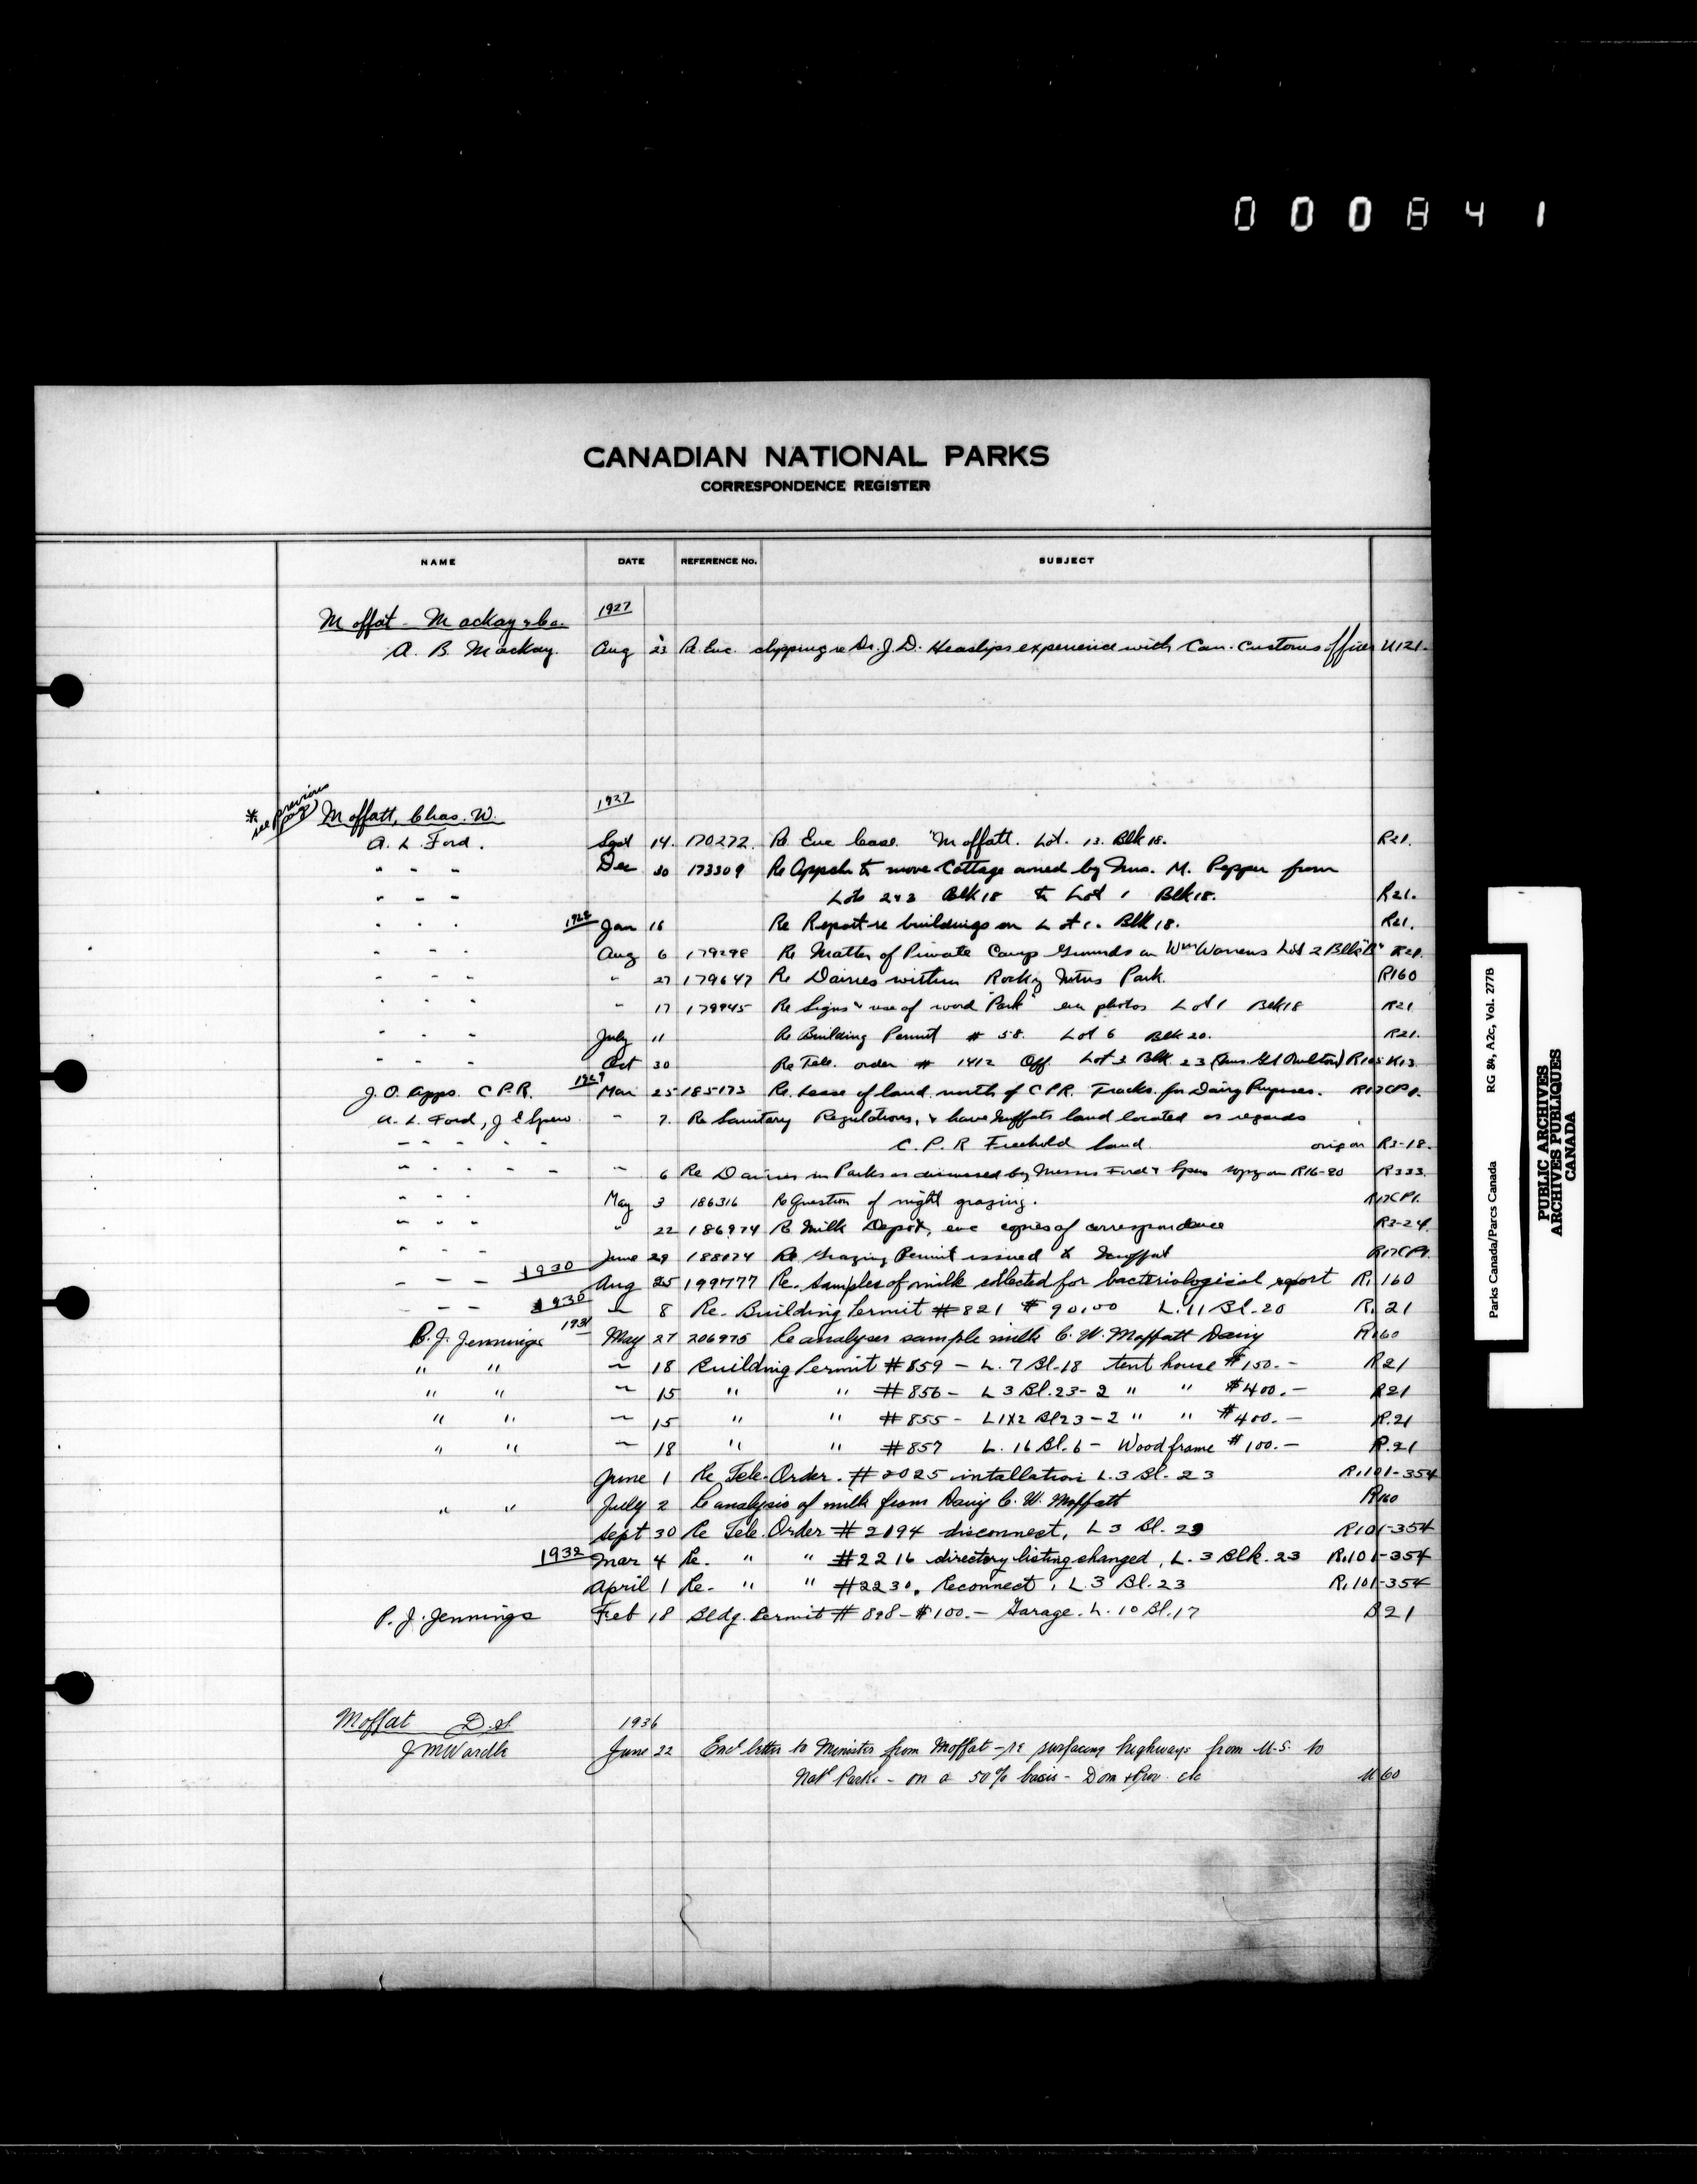 000841
CANADIAN NATIONAL PARKS
CORRESPONDENCE REGISTER
NAME DATE REFERENCE NO. SUBJECT
Moffat - Mackay & Co. 1927
A. B. Mackay. Aug 23 Re Enc. clipping re Dr. J. D. Heaslips experience with Can. Customs officer U121.
* see previous page
Moffatt, Chas. W. 1927
A. L. Ford. Sept 14. 170272. Re Enc lease. Moffatt. Lot. 13. Blk 18. R21.
" " " Dec 30 173309 Re Appcln to move Cottage owned by Mrs. M. Pepper from
" " " Lots 2 & 3 Blk 18 to Lot 1 Blk 18. R21.
" " " 1928 Jan 16 Re Report re buildings on Lot 1. Blk 18. R21.
" " " Aug 6 179298 Re Matter of Private Camp Grounds on Wm Warrens Lot 2 Blk "B" R21.
" " " " 27 179647 Re Dairies within Rocky Mtns Park. R160
" " " " 17 179445 Re Signs & use of word "Park" enc photos Lot 1 Blk 18 R21
" " " July 11 Re Building Permit # 58. Lot 6 Blk 20. R21.
" " " Oct 30 Re Tele. order # 1412 Off. Lot 3 Blk 23 (Mrs. Oulton) R105 K13
J. O. Apps. C.P.R. 1929 Mar 25 185173 Re. Lease of land north of C.P.R. Tracks. for Dairy Purposes. R17CP1.
A. L. Ford, J E Spero " 7. Re Sanitary Regulations, & have Moffats land located as regards
" " " " " C. P. R Freehold land. orig on R3-18.
" " " " " " 6 Re Dairies in Parks as discussed by Messrs Ford & Spero copy on R16-80 R333.
" " " May 3 186316 Re Question of night grazing. R17CP1.
" " " " 22 186974 Re Milk Depot, enc copies of correspondence R3-24.
" " " June 29 188074 Re Grazing Permit issued to Moffat R17CP1.
" " " 1930 Aug 25 199777 Re. Samples of milk collected for bacteriological report R. 160
" " 1930 " 8 Re. Building Permit #821 $90.00 L. 11 Bl. 20 R. 21
P. J. Jennings 1931 May 27 206975 Re analyses sample milk C. W. Moffatt Dairy R160
" " " 18 Building Permit #859 - L. 7 Bl. 18 tent house $150.- R21
" " " 15 " " #856 - L 3 Bl. 23 - 2 " " $400.- R21
" " " 15 " " #855 - L1X2 Bl 23 - 2 " " $400.- R.21
" " " 18 " " #857 L. 16 Bl. 6 - Wood frame $100.- R.21
June 1 Re Tele. Order. #2025 intallation L. 3 Bl. 23 R.101-354
" " July 2 Re analysis of milk from Dairy C. W. Moffatt R160
Sept 30 Re Tele. Order #2194 disconnect, L 3 Bl. 23 R101-354
1932 Mar 4 Re. " " #2216 directory listing changed, L. 3 Blk. 23 R.101-354
April 1 Re. " " #2230. Reconnect, L. 3 Bl. 23 R.101-354
P. J. Jennings Feb 18 Bldg. Permit #898 - $100.- Garage. L. 10 Bl. 17 R21
Moffat D. S. 1936
J M Wardle June 22 Encl letter to Minister from Moffat - re surfacing highways from U.S. to
Natl Parks - on a 50% basis - Dom & Prov. etc U 60
Parks Canada/Parcs Canada RG 84, A2c, Vol. 2778
PUBLIC ARCHIVES
ARCHIVES PUBLIQUES
CANADA